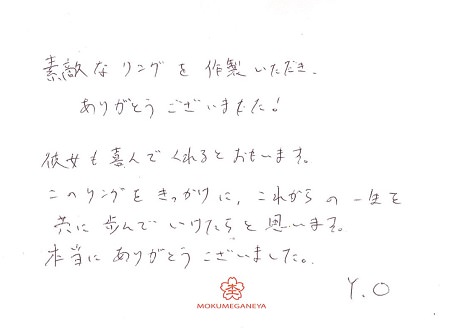 素敵なリングを作製いただき、
ありがとうございました!
彼女も喜んでくれるとおもいます。
このリングをきっかけに、これからの一生を
共に歩んでいけたらと思います。
本当にありがとうございました。
Y.O
MOKUMEGANEYA